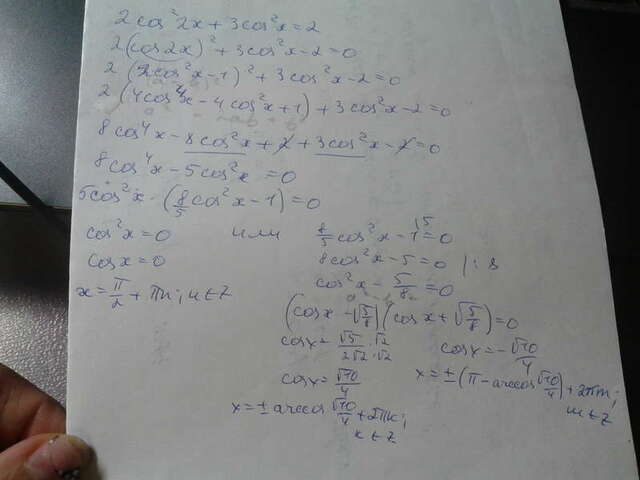 2cos²2x + 3cos²x = 2
2(cos2x)² + 3cos²x - 2 = 0
2(2cos²x - 1)² + 3cos²x - 2 = 0
2(4cos⁴x - 4cos²x + 1) + 3cos²x - 2 = 0
8cos⁴x - 8cos²x + 2 + 3cos²x - 2 = 0
8cos⁴x - 5cos²x = 0
5cos²x · (8/5 cos²x - 1) = 0
cos²x = 0 или 8/5 cos²x - 1 = 0 |·5
cosx = 0 8cos²x - 5 = 0 |:8
x = π/2 + πn; n ∈ Z cos²x - 5/8 = 0
(cosx - √(5/8))(cosx + √(5/8)) = 0
cosx = √5·√2/2√2·√2 cosx = -√10/4
cosx = √10/4 x = ±(π - arccos √10/4) + 2πm; m ∈ Z
x = ± arccos √10/4 + 2πk; k ∈ Z